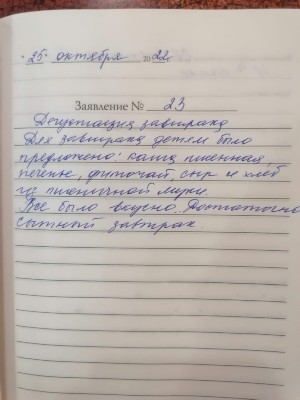 "25" октября 2022г
Заявление № 23
Дегустация завтрака
Для завтрака детям было
предложено: каша пшенная,
печенье, фиточай, сыр и хлеб
из пшеничной муки.
Все было вкусно. Достаточно
сытный завтрак.